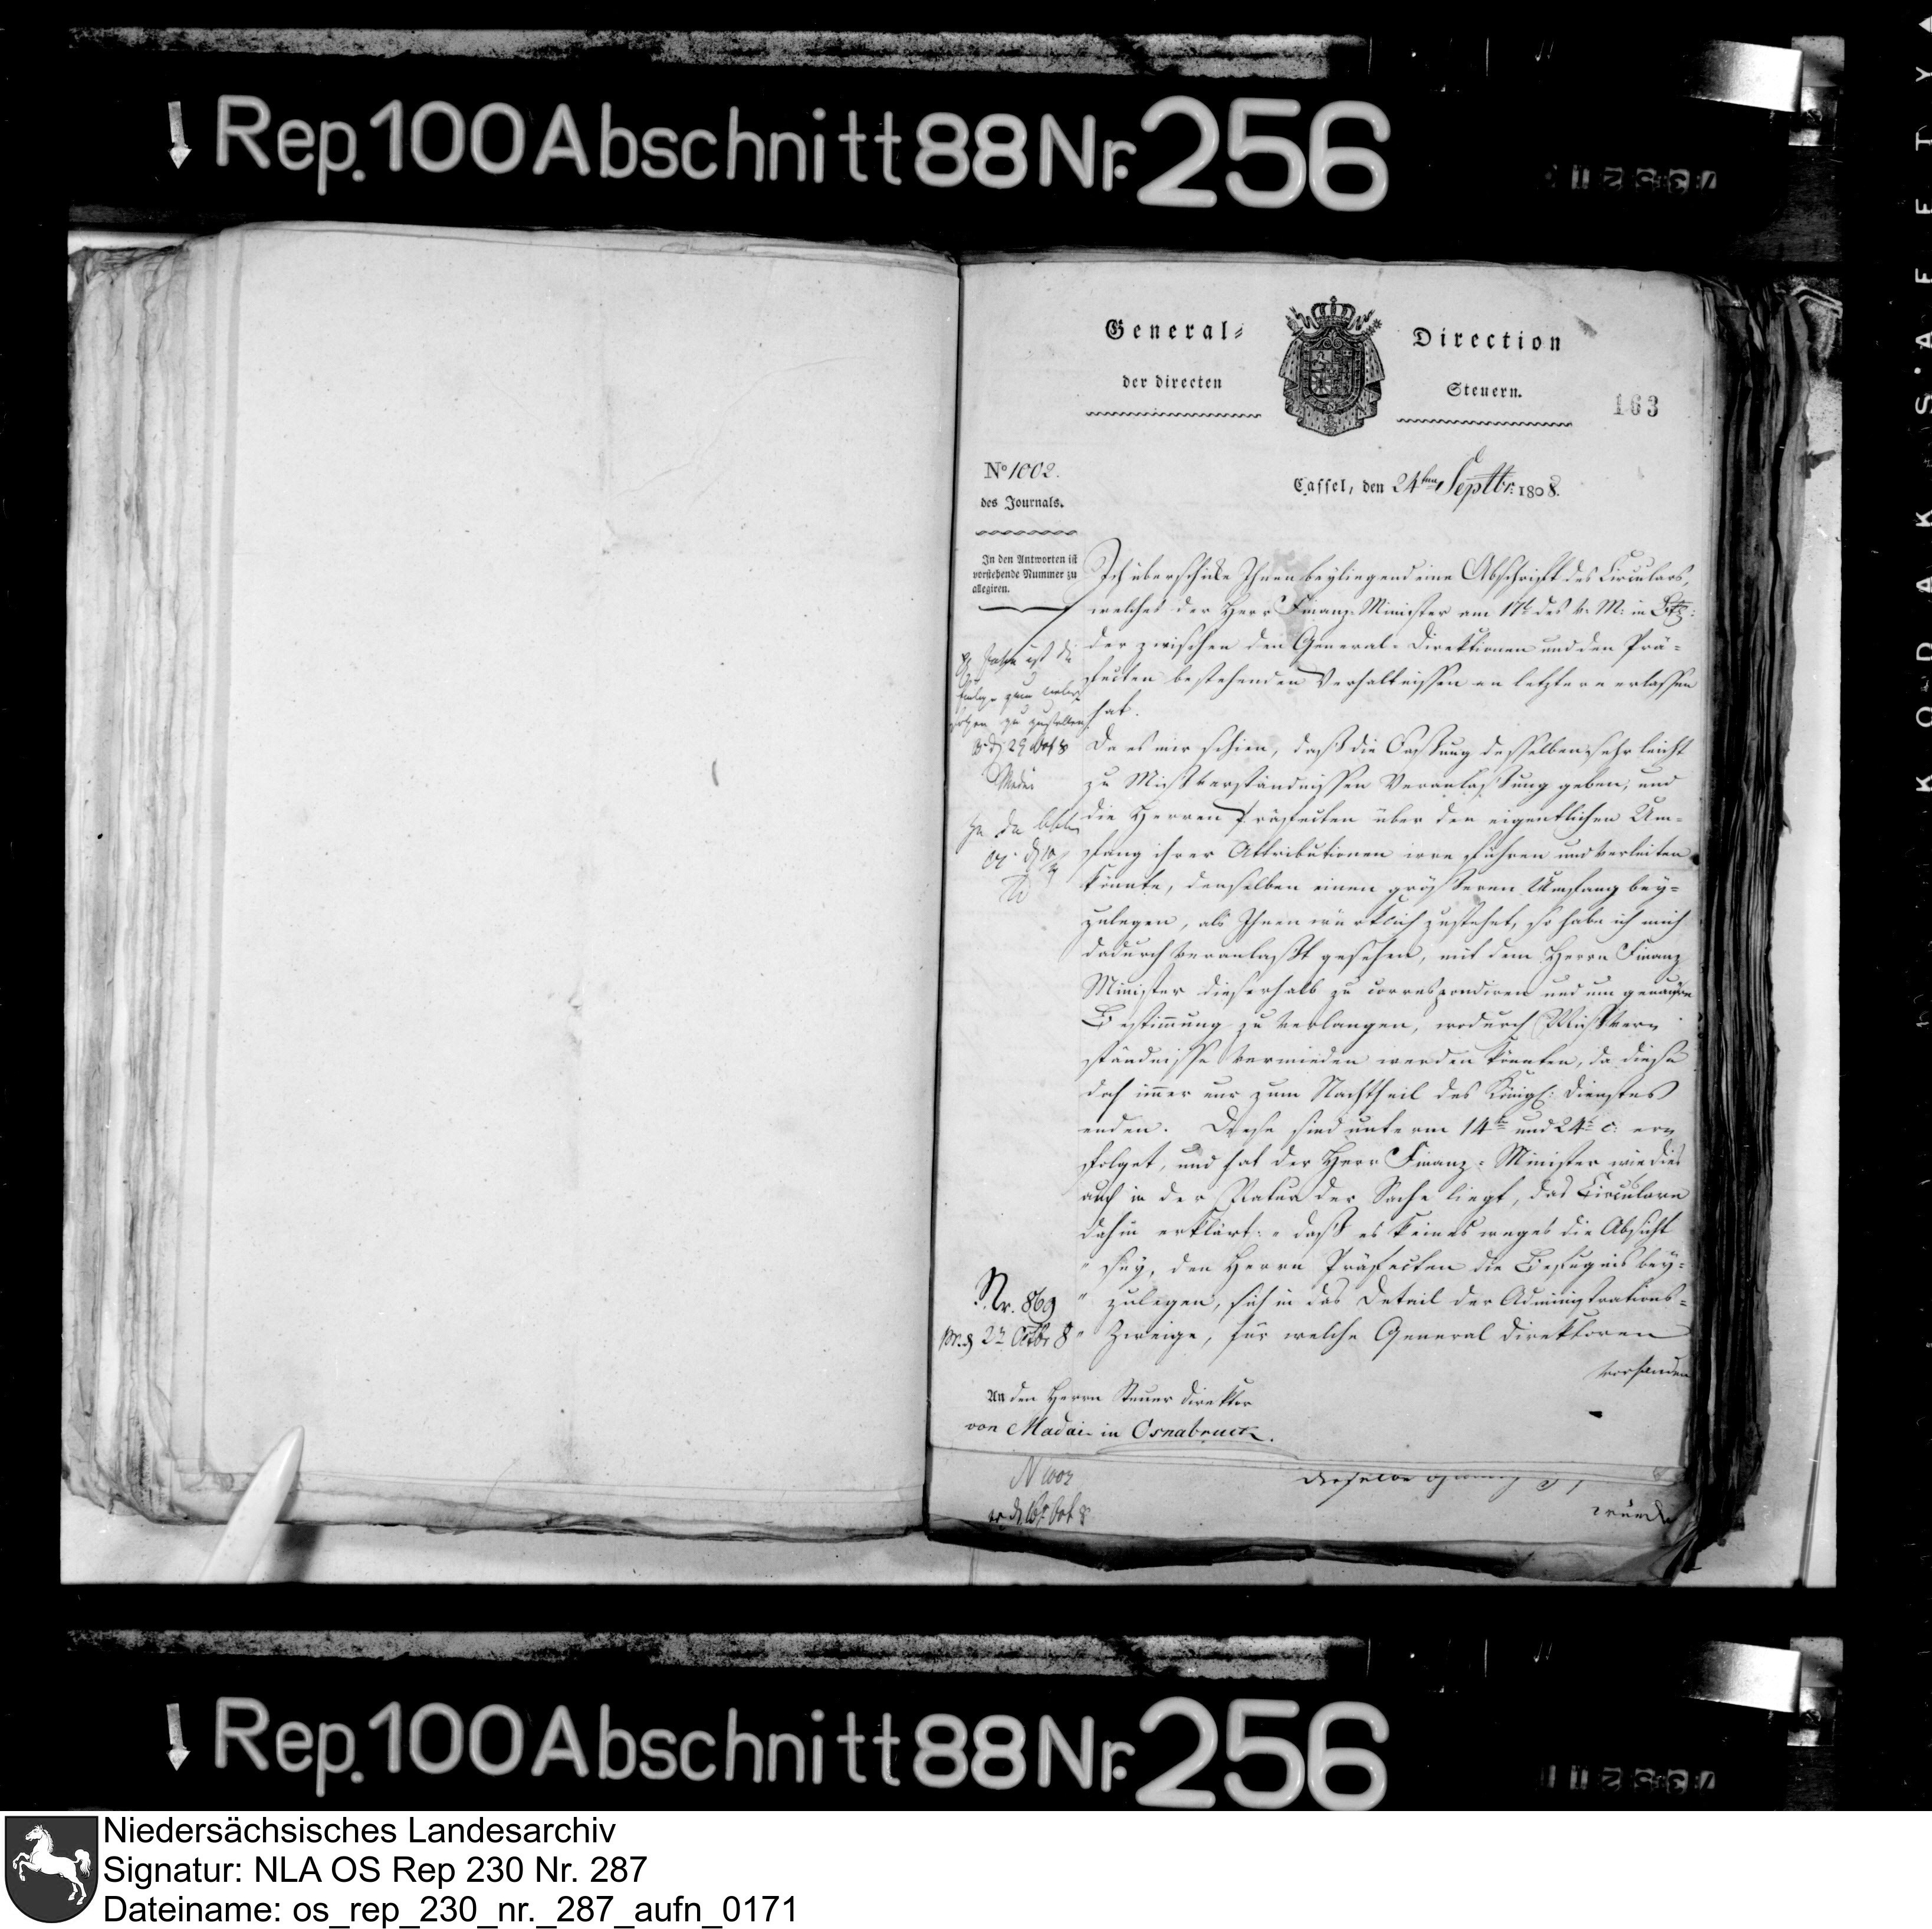 Rep. 100 Abschnitt 88 Nr. 256
General- Direction
der directen Steuern.
163
No 1002.
des Journals.
Cassel, den 24ten Septbr: 1808.
In den Antworten ist
vorstehende Nummer zu
allegiren.
Ich überschicke Ihnen beyliegend eine Abschrift des Circulars,
welches der Herr Finanz-Minister am 17t des v. M: in Betr:
der zwischen den General-Direktionen und den Prä-
fecten bestehenden Verhältnissen an letztere erlassen
hat.
Da es mir schien, daß die Fassung desselben sehr leicht
zu Mißverständnissen Veranlassung geben, und
die Herren Präfecten über den eigentlichen Um-
fang ihrer Attributionen irre führen und verleiten
könnte, denselben einen größeren Umfang bey-
zulegen, als Ihnen würklich zustehet, so habe ich mich
dadurch veranlaßt gesehen, mit dem Herrn Finanz
Minister dieserhalb zu correspondiren und um genauere
Bestimmung zu verlangen, wodurch Mißver-
ständnisse vermieden werden könnten, da diese
doch immer nur zum Nachtheil des Königl: Dienstes
enden. Diese sind unterm 14t und 24t c: er-
folget, und hat der Herr Finanz-Minister wie dies
auch in der Natur der Sache liegt, das Circulare
dahin erklärt: „daß es keinesweges die Absicht
" sey, den Herrn Präfecten die Befugnis bey-
" zulegen, sich in das Detail der Administrations-
" Zweige, für welche General Direktoren
vorhanden
ist die
zuzustellen
29 Oct 8
Madai
Nr. 869
2t Octbr 8
An den Herrn Steuer Direktor
von Madai in Osnabruck.
N 1002
Oct 8
dieselbe
würde
Rep. 100 Abschnitt 88 Nr. 256
KODAK SAFETY
Niedersächsisches Landesarchiv
Signatur: NLA OS Rep 230 Nr. 287
Dateiname: os_rep_230_nr._287_aufn_0171